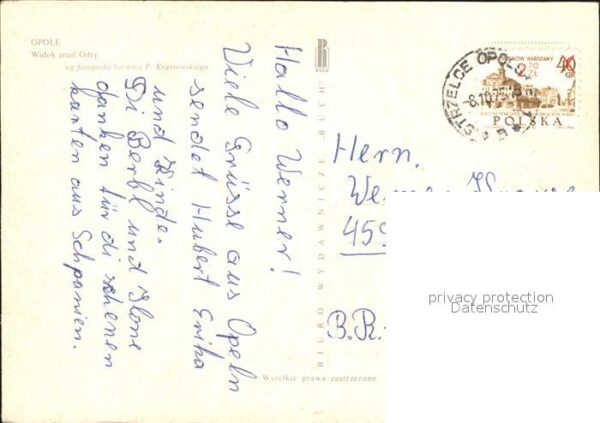 OPOLE
Widok znad Odry
wg fotografii barwnej P. Krassowskiego
Hallo Werner!
Viele Grüsse aus Opeln
sendet Hubert Erika
und Linde.
Di Berbl und Ilone
danken für di schenen
karten aus Schpanien.
RUCH
BIURO WYDAWNICZE RUCH
Wszelkie prawa zastrzeżone
STRZELCE OPOL
-8.10.75-18
40
GR
2,70
ZŁ
POLSKA
Hern.
459
B.R.
privacy protection
Datenschutz